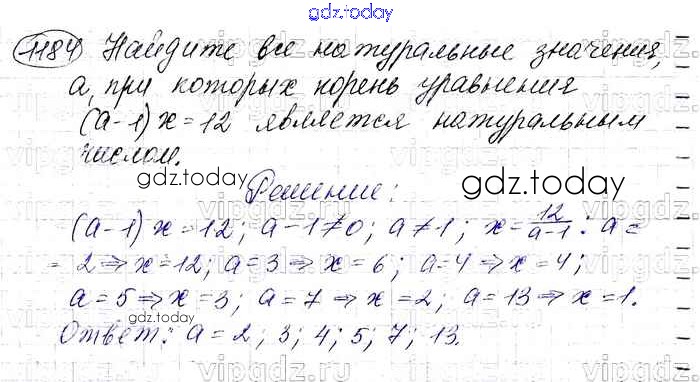 gdz.today
1184 Найдите все натуральные значения,
a, при которых корень уравнения
(a-1)x=12 является натуральным
числом.
gdz.today
Решение:
gdz.today
(a-1)x=12; a-1≠0; a≠1; x=12/(a-1): a=
=2⇒x=12; a=3⇒x=6; a=4⇒x=4;
a=5⇒x=3; a=7⇒x=2; a=13⇒x=1.
Ответ: a=2; 3; 4; 5; 7; 13.
gdz.today